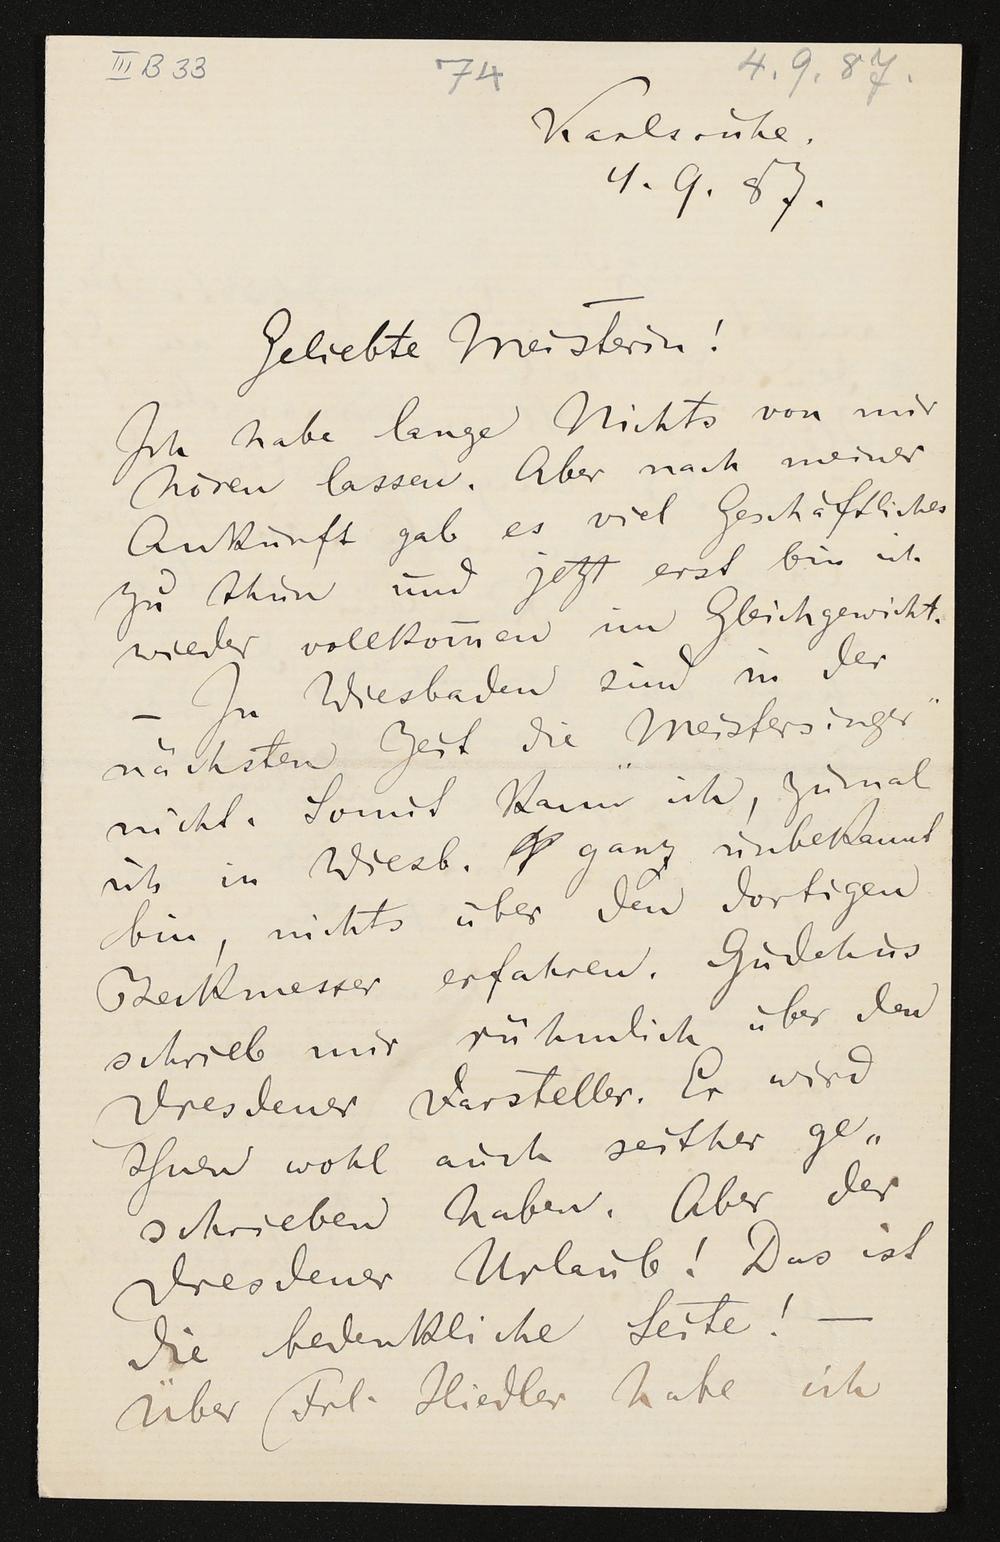 III B 33
74
4. 9. 87.
Karlsruhe.
4. 9. 87.
Geliebte Meisterin!
Ich habe lange Nichts von mir
hören lassen. Aber nach meiner
Ankunft gab es viel Geschäftliches
zu thun und jetzt erst bin ich
wieder vollkom̅en im Gleichgewicht.
– In Wiesbaden sind in der
nächsten Zeit die „Meistersinger"
nicht. Somit kann ich, zumal
ich in Wiesb. ganz unbekannt
bin, nichts über den dortigen
Beckmesser erfahren. Gudehus
schrieb mir rühmlich über den
Dresdener Darsteller. Er wird
Ihnen wohl auch seither ge„
schrieben haben. Aber der
Dresdener Urlaub! Das ist
die bedenkliche Seite! —
Über Frl. habe ich